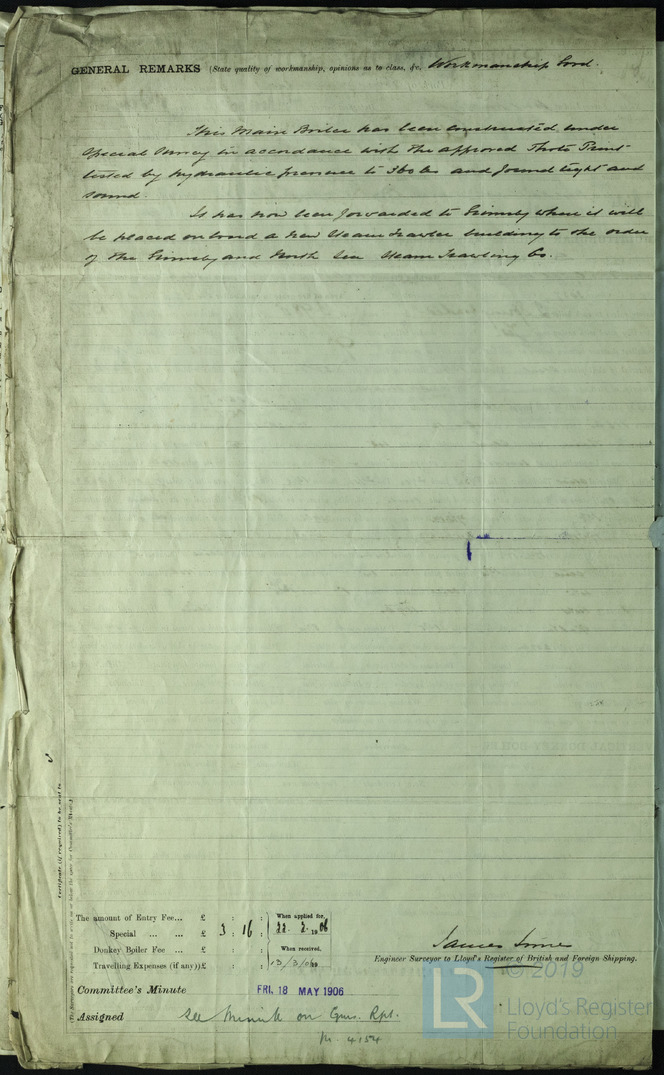 GENERAL REMARKS (State quality of workmanship, opinions as to class, &c. Workmanship Good.
This Main Boiler has been constructed under
Special Survey in accordance with the approved Photo Print
tested by hydraulic pressure to 360 lbs and found tight and
sound.
It has now been forwarded to Grimsby where it will
be placed on board a new Steam Trawler building to the order
of the Grimsby and North Sea Steam Trawling Co.
Certificate (if required) to be sent to
The amount of Entry Fee... £ : :
Special ... ... £ 3 : 16 :
Donkey Boiler Fee £ : :
Travelling Expenses (if any) £ : :
When applied for,
22. 2. 1906
When received,
James
Engineer Surveyor to Lloyd's Register of British and Foreign Shipping.
Committee's Minute
FRI. 18 MAY 1906
Assigned See Minute on Rpt.
4154
© 2019
LR
Lloyd's Register
Foundation